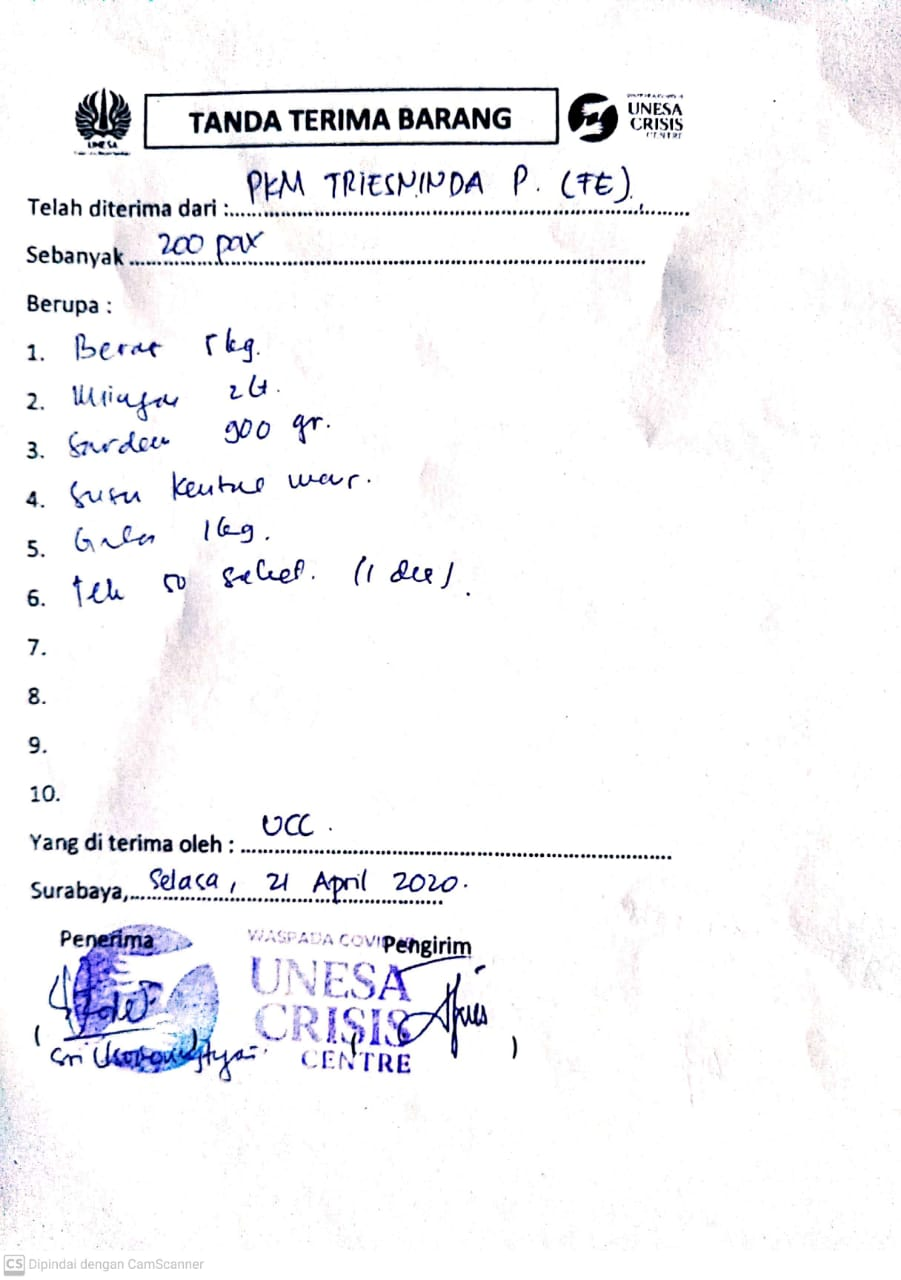 UNESA
TANDA TERIMA BARANG
UNESA
CRISIS
CENTRE
Telah diterima dari : PKM TRIESNINDA P. (FE)
Sebanyak 200 pax
Berupa :
1. Beras 5 kg.
2. Minyak 2 Lt.
3. Sarden 900 gr.
4. Susu Kental
5. Gula 1 kg.
6. Teh 50 sachet. (1 dus)
7.
8.
9.
10.
Yang di terima oleh : UCC.
Surabaya, Selasa, 21 April 2020.
Penerima
WASPADA COVID
Pengirim
UNESA
CRISIS
CENTRE
Sri
CS Dipindai dengan CamScanner